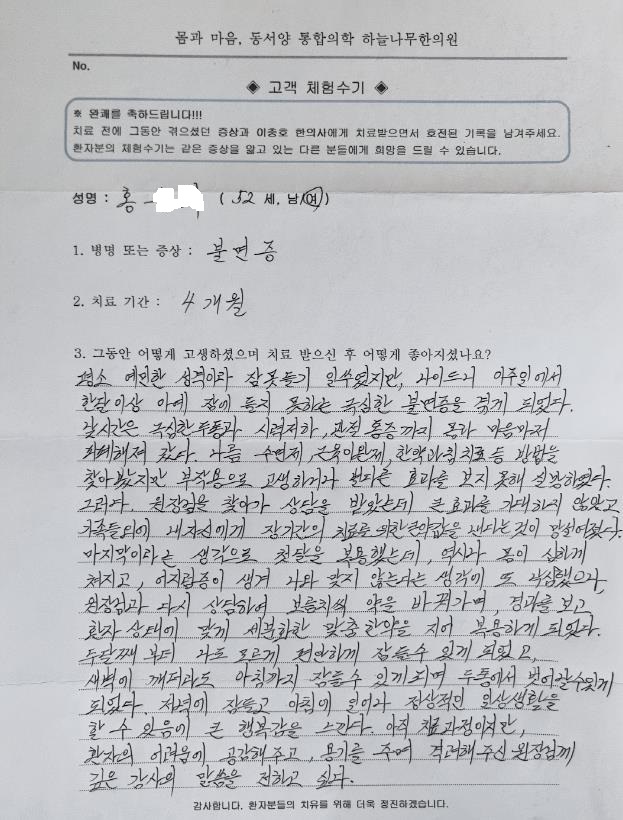 몸과 마음, 동서양 통합의학 하늘나무한의원
No.
◈ 고객 체험수기 ◈
※ 완쾌를 축하드립니다!!!
치료 전에 그동안 겪으셨던 증상과 이종호 한의사에게 치료받으면서 호전된 기록을 남겨주세요.
환자분의 체험수기는 같은 증상을 앓고 있는 다른 분들에게 희망을 드릴 수 있습니다.
성명 : 홍 ( 52 세, 남/여)
1. 병명 또는 증상 : 불면증
2. 치료 기간 : 4개월
3. 그동안 어떻게 고생하셨으며 치료 받으신 후 어떻게 좋아지셨나요?
평소 예민한 성격이라 잠못들기 일쑤였지만, 나이드니 아주일에서
한달이상 아예 잠이 들지 못하는 극심한 불면증을 겪게 되었다.
갈시간은 극심한두통과 시력저하, 관절 통증까지 몸과 마음마저
피폐해져 갔다. 나름 수면제, 근육이완제, 한약과침치료등 방법을
찾아봤지만 부작용으로 고생하거나 별다른 효과를 보지못해 실망하였다.
그러다. 원장님을 찾아가 상담을 받았는데 큰효과를 기대하지 않았고
가족들외에 내자신에게 장기간의 치료를 위한큰약값을 낸다는것이 망설여졌다.
마지막이라는 생각으로 첫달을 복용했는데, 역시나 몸이 심하게
쳐지고, 어지럼증이 생겨 나와 맞지 않는다는 생각에 또 낙심했으나,
원장님과 다시 상담하여 보름치씩 약을 바꿔가며, 경과를 보고
환자 상태에 맞게 세분화한 맞춤한약을 지어 복용하게 되었다.
두달째 부터 나도 모르게 편안하게 잠들수 있게 되었고,
새벽에 깨더라도 아침까지 잠들수 있게되며 두통에서 벗어날수있게
되었다. 저녁에 잠들고 아침에 일어나 정상적인 일상생활을
할 수 있음에 큰 행복감을 느낀다. 아직 치료과정이지만,
환자의 어려움에 공감해주고, 용기를 주며 격려해주신 원장님께
깊은 감사의 말씀을 전하고 싶다.
감사합니다. 환자분들의 치유를 위해 더욱 정진하겠습니다.